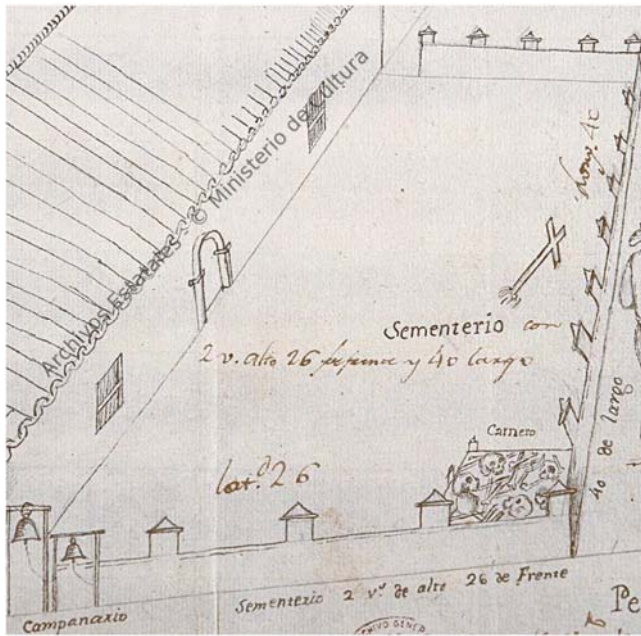 Archivos Estatales - © Ministerio de Cultura
Long. 40
Sementerio con
2 v. alto 26 de frente y 40 largo
Carnero
lat.d 26
40 de largo
Sementerio 2 vs de alto 26 de Frente
Campanario
Pe